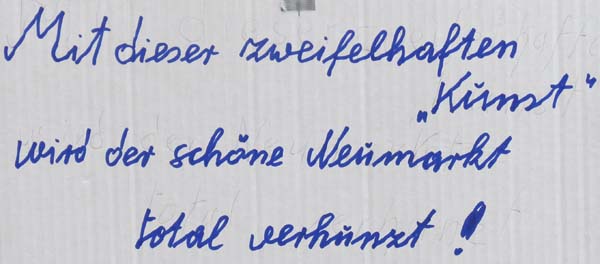 Mit dieser zweifelhaften
„Kunst“
wird der schöne Neumarkt
total verhunzt!